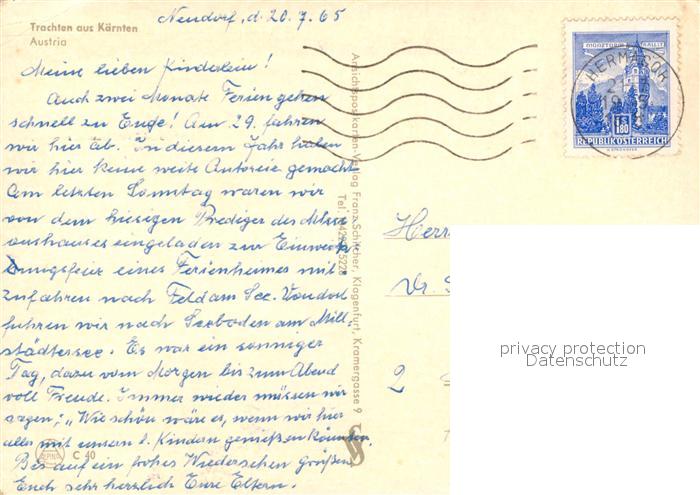 Trachten aus Kärnten
Austria
Neudorf, d. 20.7.65
Meine lieben Kinderlein!
Auch zwei Monate Ferien gehen
schnell zu Ende! Am 29. fahren
wir hier ab. In diesem Jahr haben
wir hier keine weite Autoreise gemacht.
Am letzten Sonntag waren wir
von dem hiesigen Prediger des
aushauses eingeladen zur Einweih
ungsfeier eines Ferienheimes mit
zufahren nach Feld am See. Von dort
fuhren wir nach Seeboden am Mill
städtersee. Es war ein sonniger
Tag, dazu vom Morgen bis zum Abend
voll Freude. Immer wieder müssen wir
sagen: "Wie schön wäre es, wenn wir hier
alles mit unsern l. Kindern genießen könnten.
Bis auf ein frohes Wiedersehen grüßen
Euch sehr herzlich Eure Eltern.
C 40
Ansichtspostkarten-Verlag Franz Schilcher, Klagenfurt, Kramergasse 9
Tel.
HERMAGOR
S 1.80
REPUBLIK ÖSTERREICH
Herrn
Dr.
2
privacy protection
Datenschutz